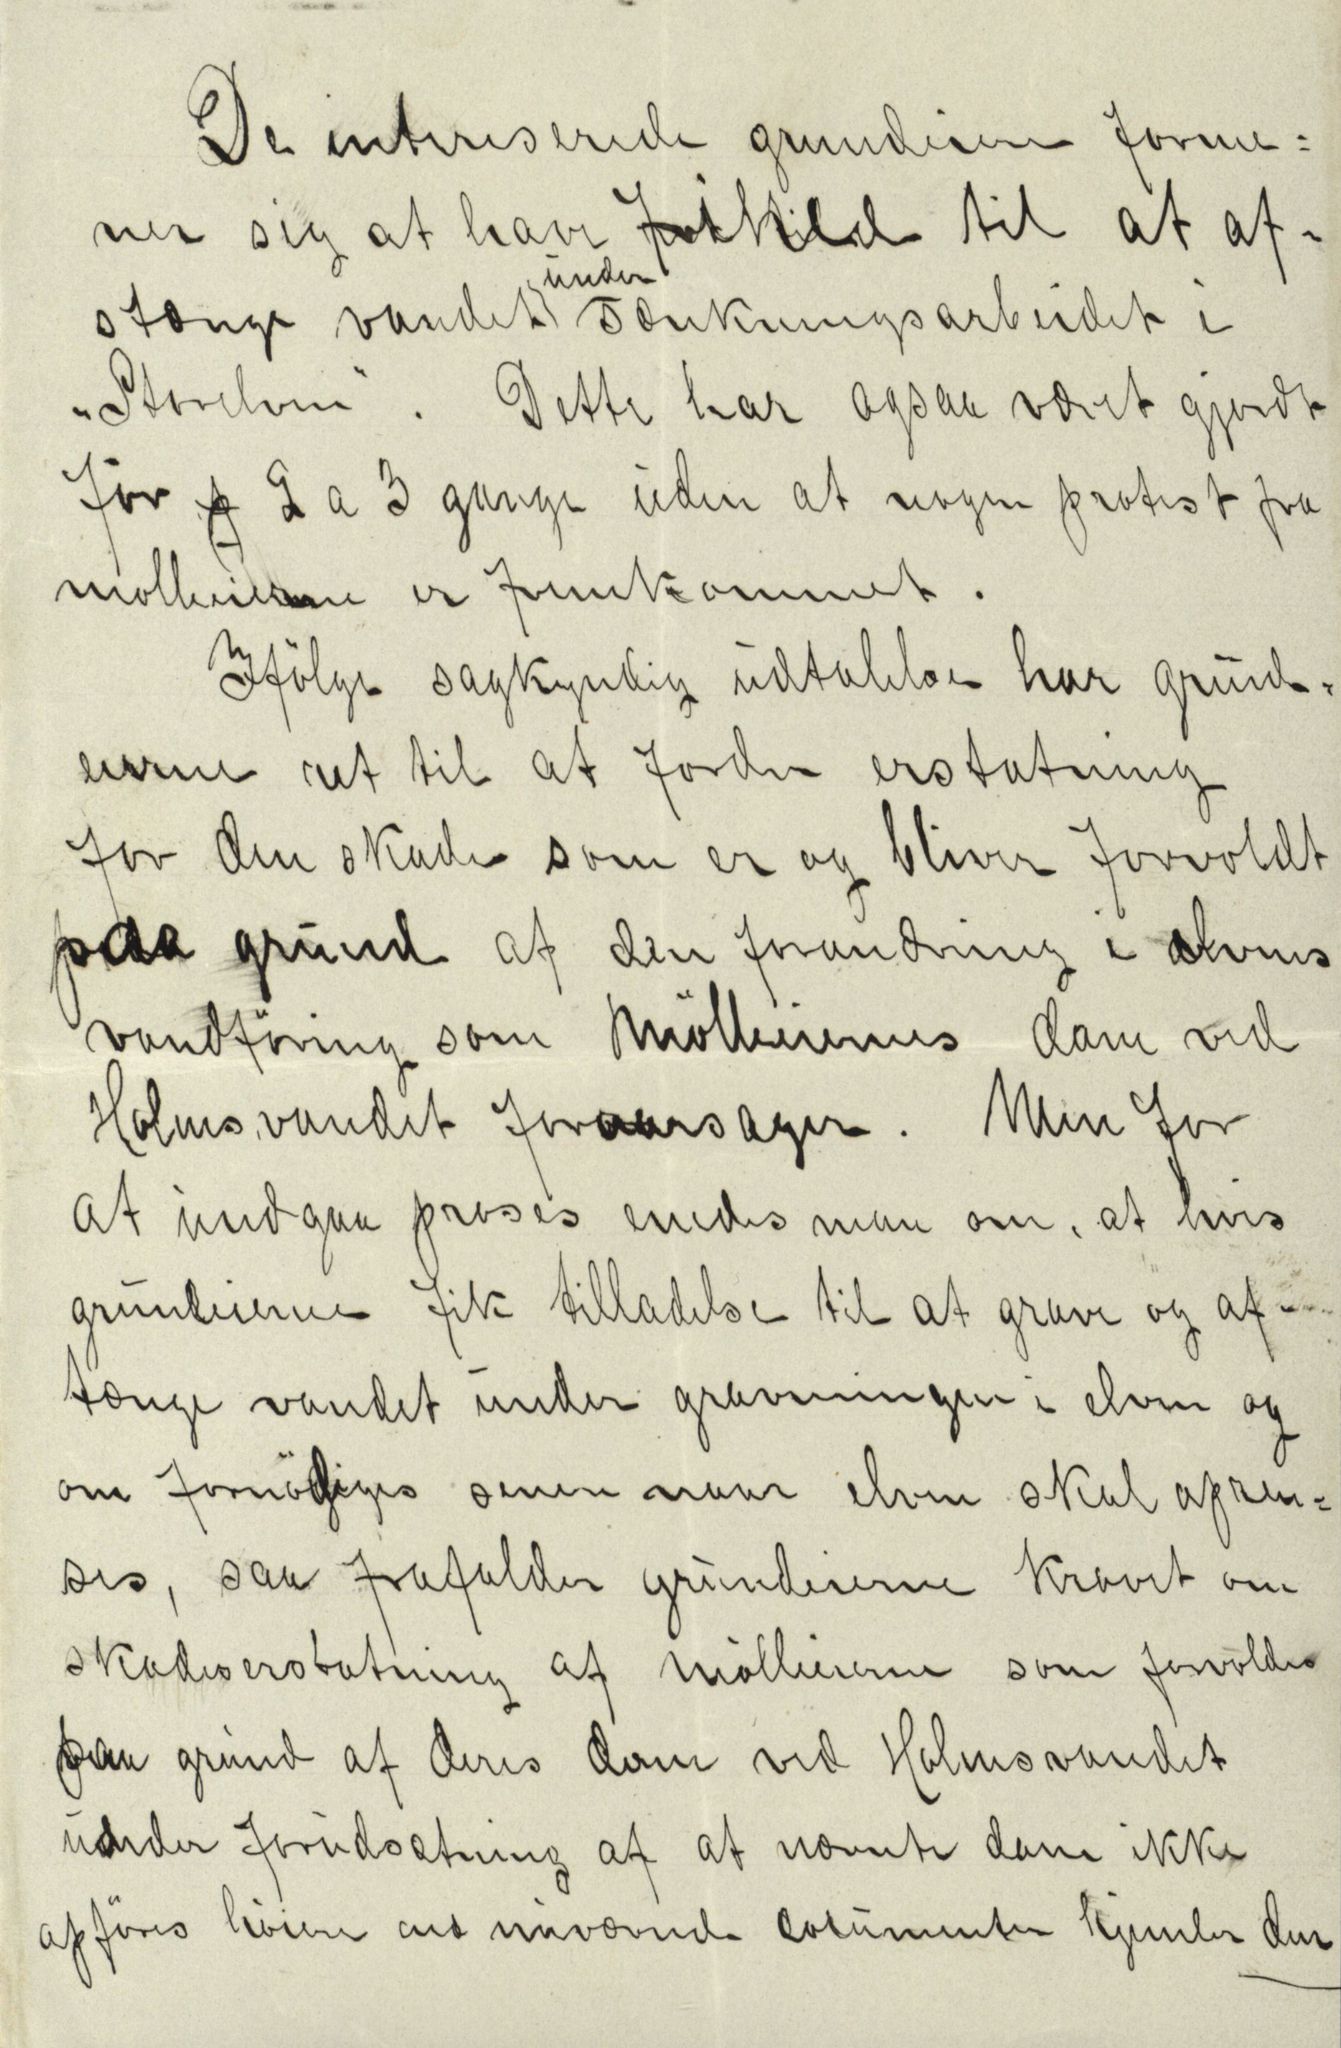 De interiserede grundeiere forme=
ner sig at have til at af-
stænge vandet under Sænkningsarbeidet i
"Storelven". Dette har ogsaa været gjordt
før 2 a 3 gange uden at nogen protest fra
mølleierne er fremkommet.
Ifølge sagkyndig udtalelse har grund=
eierne ret til at fordre erstatning
for den skade som er og bliver forvoldt
paa grund af den forandring i elvens
vandføring som Mølleiernes dam ved
Holmsvandet foraarsager. Men for
at undgaa proses enedes man om, at hvis
grundeierne fik tilladelse til at grave og af-
tænge vandet under gravningen i elven og
om fornødiges senere naar elven skal afren=
ses, saa frafalder grundeierne kravet om
skadeserstatning af mølleierne som forvoldes
paa grund af deres dam ved Holmsvandet
under forudsætning af at nævnte dam ikke
opføres høiere end nuværende den